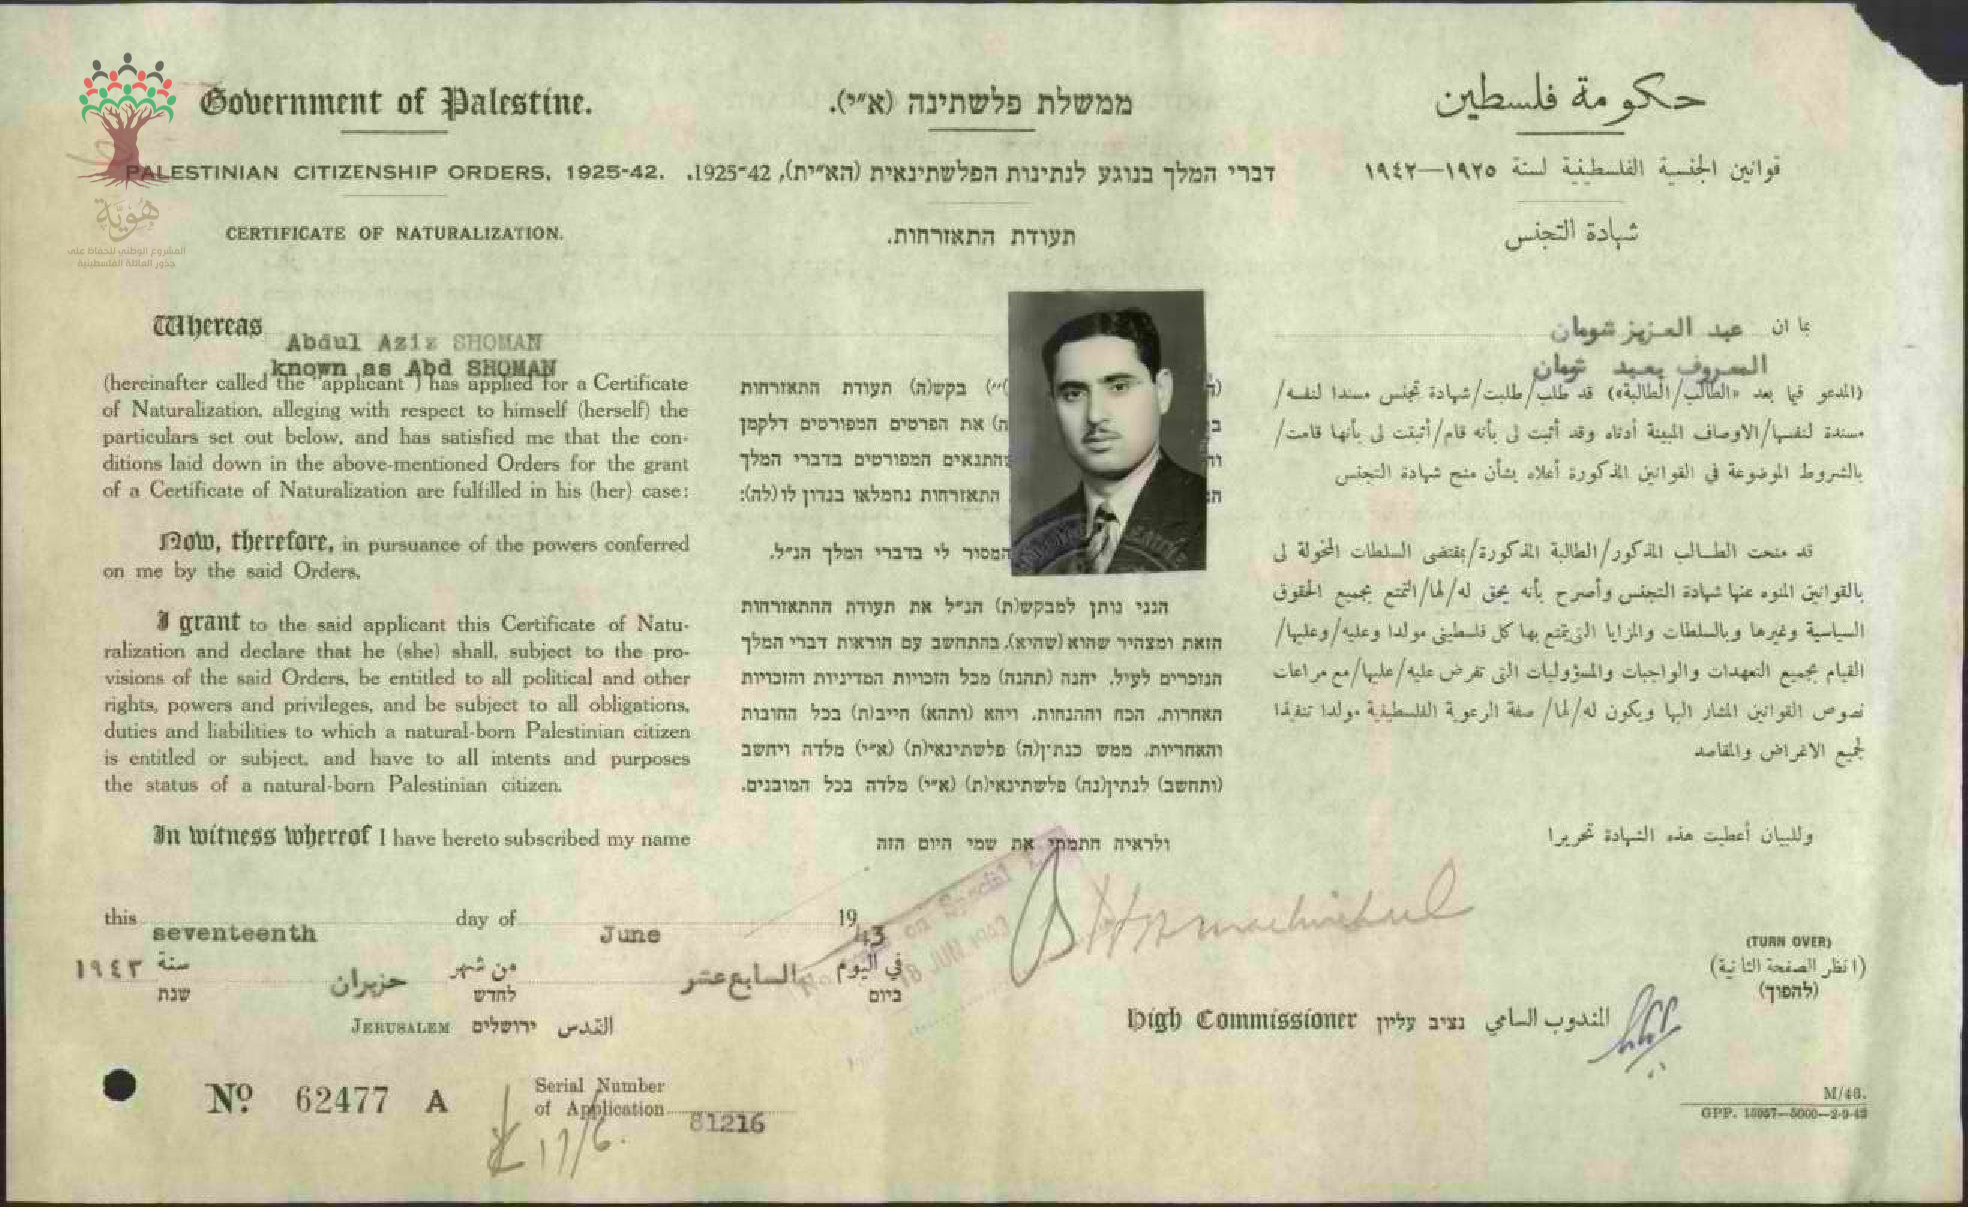 Government of Palestine.
PALESTINIAN CITIZENSHIP ORDERS, 1925-42.
CERTIFICATE OF NATURALIZATION.
ממשלת פלשתינה (א״י).
דברי המלך בנוגע לנתינות הפלשתינאית (הא״ית), 1925-42.
תעודת התאזרחות.
حكومة فلسطين
قوانين الجنسية الفلسطينية لسنة ١٩٢٥—١٩٤٢
شهادة التجنس
هَوِيَّة
المشروع الوطني للحفاظ على
جذور العائلة الفلسطينية
Whereas Abdul Aziz SHOMAN
known as Abd SHOMAN
(hereinafter called the "applicant") has applied for a Certificate
of Naturalization, alleging with respect to himself (herself) the
particulars set out below, and has satisfied me that the con-
ditions laid down in the above-mentioned Orders for the grant
of a Certificate of Naturalization are fulfilled in his (her) case:
Now, therefore, in pursuance of the powers conferred
on me by the said Orders,
I grant to the said applicant this Certificate of Natu-
ralization and declare that he (she) shall, subject to the pro-
visions of the said Orders, be entitled to all political and other
rights, powers and privileges, and be subject to all obligations,
duties and liabilities to which a natural-born Palestinian citizen
is entitled or subject, and have to all intents and purposes
the status of a natural-born Palestinian citizen.
In witness whereof I have hereto subscribed my name
בקש(ה) תעודת התאזרחות
את הפרטים המפורטים דלקמן
התנאים המפורטים בדברי המלך
התאזרחות נתמלאו בנדון לו(לה):
המסור לי בדברי המלך הנ״ל,
הנני נותן למבקש(ת) הנ״ל את תעודת ההתאזרחות
הזאת ומצהיר שהוא (שהיא), בהתחשב עם הוראות דברי המלך
הנזכרים לעיל, יהנה (תהנה) מכל הזכויות המדיניות והזכויות
האחרות, הכח וההנחות, ויהא (ותהא) חייב(ת) בכל החובות
והאחריות, ממש כנתין(ה) פלשתינאי(ת) (א״י) מלדה ויחשב
(ותחשב) לנתין(נה) פלשתינאי(ת) (א״י) מלדה בכל המובנים.
ולראיה חתמתי את שמי היום הזה
بما ان عبد العزيز شومان
المعروف بعبد شومان
(المدعو فيما بعد «الطالب/الطالبة») قد طلب/طلبت/شهادة تجنس مسندا لنفسه/
مسندة لنفسها/الاوصاف المبينة أدناه وقد أثبت لى بأنه قام/أثبتت لى بأنها قامت/
بالشروط الموضوعة في القوانين المذكورة أعلاه بشأن منح شهادة التجنس
قد منحت الطالب المذكور/الطالبة المذكورة/بمقتضى السلطات المخولة لى
بالقوانين المنوه عنها شهادة التجنس وأصرح بأنه يحق له/لها/التمتع بجميع الحقوق
السياسية وغيرها وبالسلطات والمزايا التى يتمتع بها كل فلسطيني مولدا وعليه/وعليها/
القيام بجميع التعهدات والواجبات والمسؤوليات التى تفرض عليه/عليها/مع مراعات
نصوص القوانين المشار اليها ويكون له/لها/ صفة الرعوية الفلسطينية مولدا تنفيذا
لجميع الاغراض والمقاصد
وللبيان أعطيت هذه الشهادة تحريرا
this seventeenth day of June 1943
في اليوم السابع عشر من شهر حزيران سنة ١٩٤٣
ביום לחדש שנת
JERUSALEM ירושלים القدس
on Special
18 JUN 1943
High Commissioner נציב עליון المندوب السامي
(TURN OVER)
(انظر الصفحة الثانية)
(להפוך)
No. 62477 A
Serial Number
of Application 81216
17/6.
M/46.
GPP. 15057—5000—2-9-42